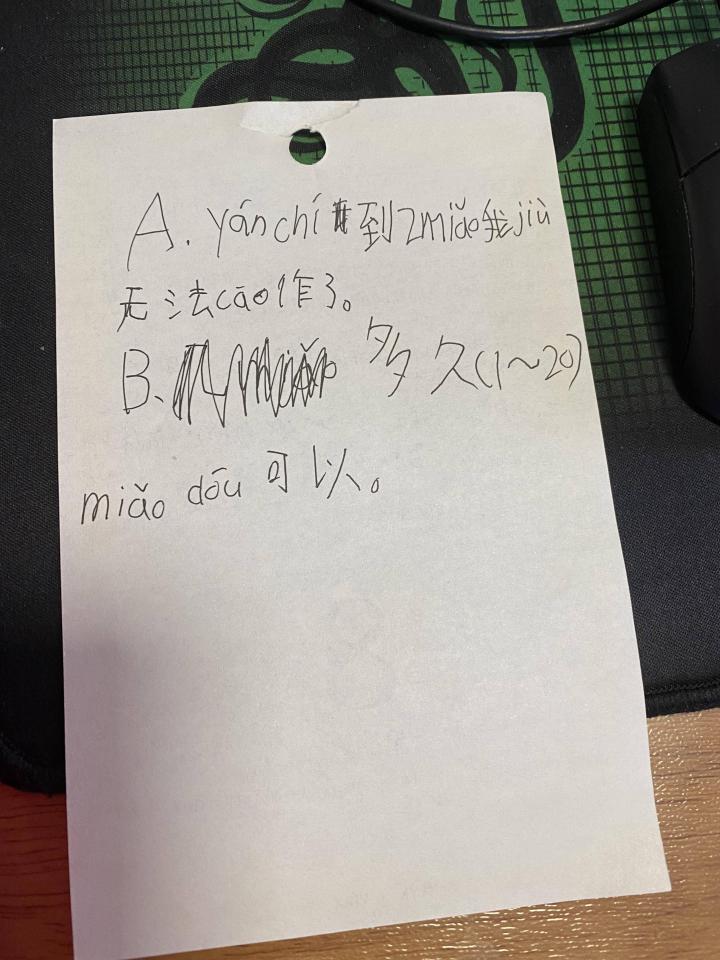 A. yán chí 到2miǎo我jiù
无法cāo作了。
B、多久(1～20)
miǎo dōu 可以。